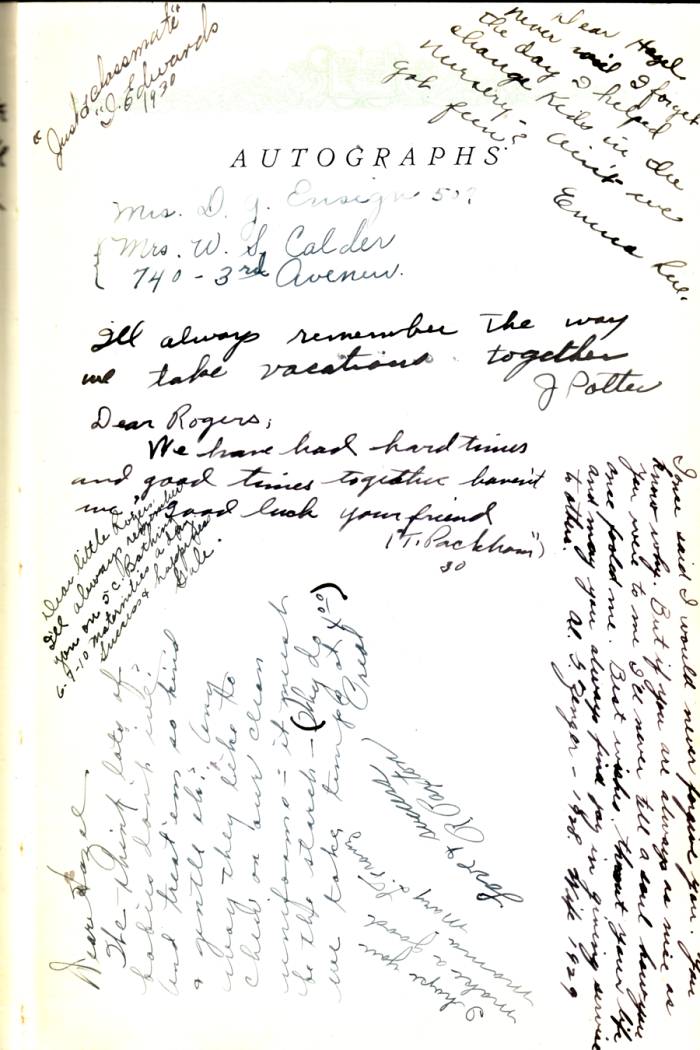 "Just a classmate"
"D. Edwards
1930
Dear Hazel
never will I forget
the day I helped
change Kids in the
nursery - ain't we
got fun?
Emma Rue.
AUTOGRAPHS
Mrs. D. J. Ensign
Mrs. W. S. Calder
740 - 3rd Avenew.
I'll always remember the way
we take vacations together
J Potter
Dear Rogers;
We have had hard times
and good times together haven't
we, good luck your friend
(T. Packham")
30
Dear little Rogers
I'll always remember
you on 5c. Bathing
6-9-10 maternities a day
Success & happiness
Gale.
I once said I would never forgive you. You
know why. But if you are always as nice as
you were to me I'll never tell a soul how you
once fooled me. Best wishes thruout your life
and may you always find joy in giving service
to others.
1929
Dear Hazel
The think lots of
babies don't we?
and treat em so kind
& gentle eh? Any
way they like to
chew on our clean
uniforms - it must
be the starch - (Why do
we take temps at 4:00)
I hope you
make a good
mamma
Mary
Love & success